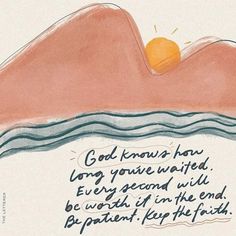 God knows how
long you've waited.
Every second will
be worth it in the end.
Be patient. Keep the faith.
THE LETTERER